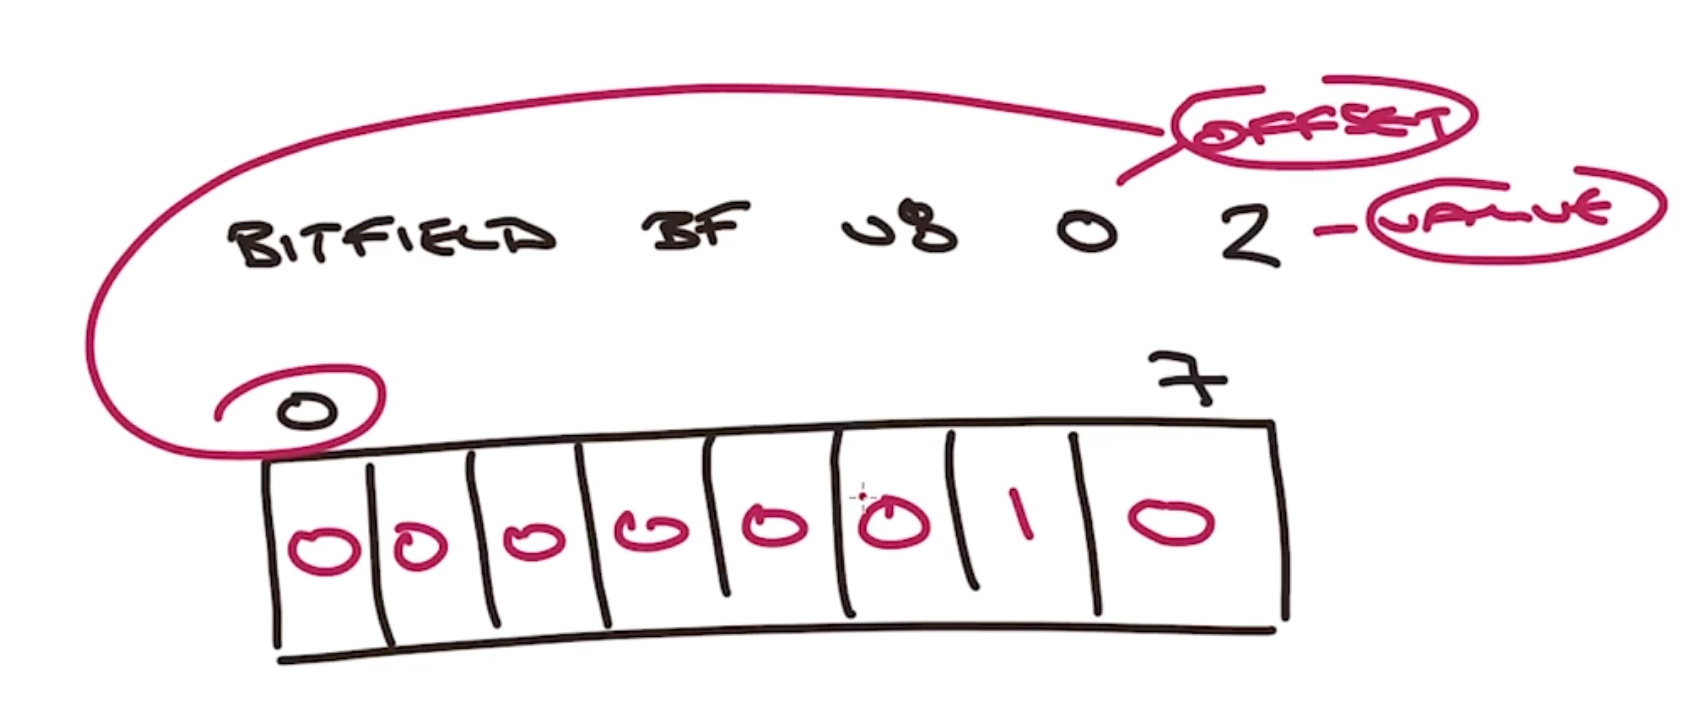 OFFSET
BITFIELD BF U8 0 2 - VALUE
0 7
0 0 0 0 0 0 1 0